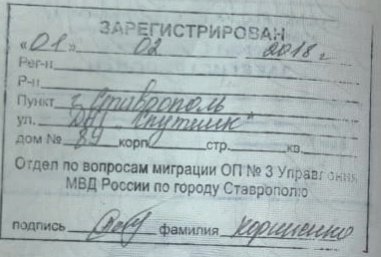 ЗАРЕГИСТРИРОВАН
«01» 02 2018 г.
Рег-н
Р-н
Пункт г. Ставрополь
ул. "Спутник"
дом № 89 корп. стр. кв.
Отдел по вопросам миграции ОП № 3 Управления
МВД России по городу Ставрополю
подпись фамилия